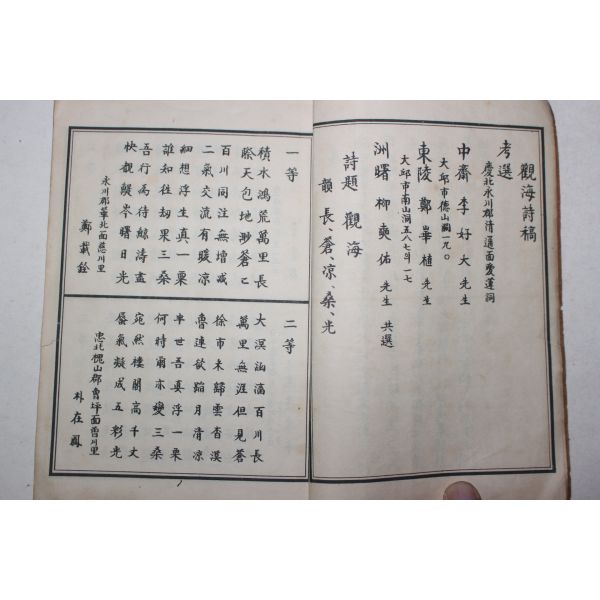 觀海詩稿
考選
慶北永川郡淸通面愛蓮洞
中齋 李好大 先生
大邱市德山洞一九〇
東陵 鄭華植 先生
大邱市南山洞五八七斗一七
洲曙 柳奭佑 先生 共選
詩題 觀海
韻 長、蒼、凉、桑、光
一等
積水鴻荒萬里長
際天包地渺蒼蒼
百川同注無增減
二氣交流有暖凉
細想浮生眞一粟
誰知往劫果三桑
吾行爲待鯨濤盡
快覩鼇岑曙日光
永川郡華北面慈川里
鄭載
二等
大溟涵滀百川長
萬里無涯但見蒼
徐市未歸雲杳漠
魯連欲蹈月淸凉
半世吾眞浮一粟
何時爾亦變三桑
宛然樓閣高千丈
蜃氣凝成五彩光
忠北槐山郡曾坪面曾川里
朴在鳳